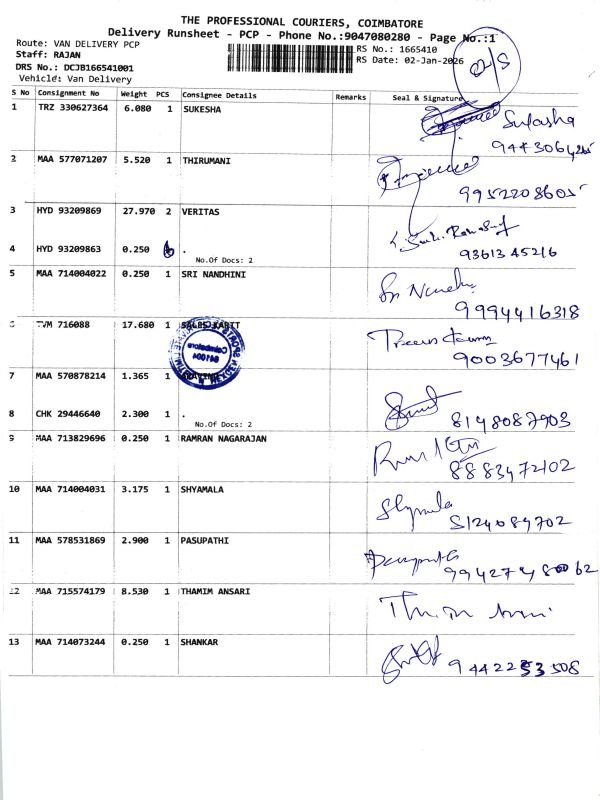 THE PROFESSIONAL COURIERS, COIMBATORE
Delivery Runsheet - PCP - Phone No.:9047080280 - Page No.:1
Route: VAN DELIVERY PCP
RS No.: 1665410
Staff: RAJAN
RS Date: 02-Jan-2026
DRS No.: DCJB166541001
Vehicle: Van Delivery
S No Consignment No Weight PCS Consignee Details Remarks Seal & Signature
1 TRZ 330627364 6.080 1 SUKESHA
Sukasha
9443064265
2 MAA 577071207 5.520 1 THIRUMANI
9952208605
3 HYD 93209869 27.970 2 VERITAS
4 HYD 93209863 0.250 1 .
9361345216
No.Of Docs: 2
5 MAA 714004022 0.250 1 SRI NANDHINI
Sri Nandhi
9994416318
6 TVM 716088 17.680 1 SALES KARTT
Coimbatore
641004
9003677461
7 MAA 570878214 1.365 1
8 CHK 29446640 2.300 1 .
8148087903
No.Of Docs: 2
9 MAA 713829696 0.250 1 RAMRAN NAGARAJAN
8883472102
10 MAA 714004031 3.175 1 SHYAMALA
Shymala
8124089702
11 MAA 578531869 2.900 1 PASUPATHI
12 MAA 715574179 8.530 1 THAMIM ANSARI
13 MAA 714073244 0.250 1 SHANKAR